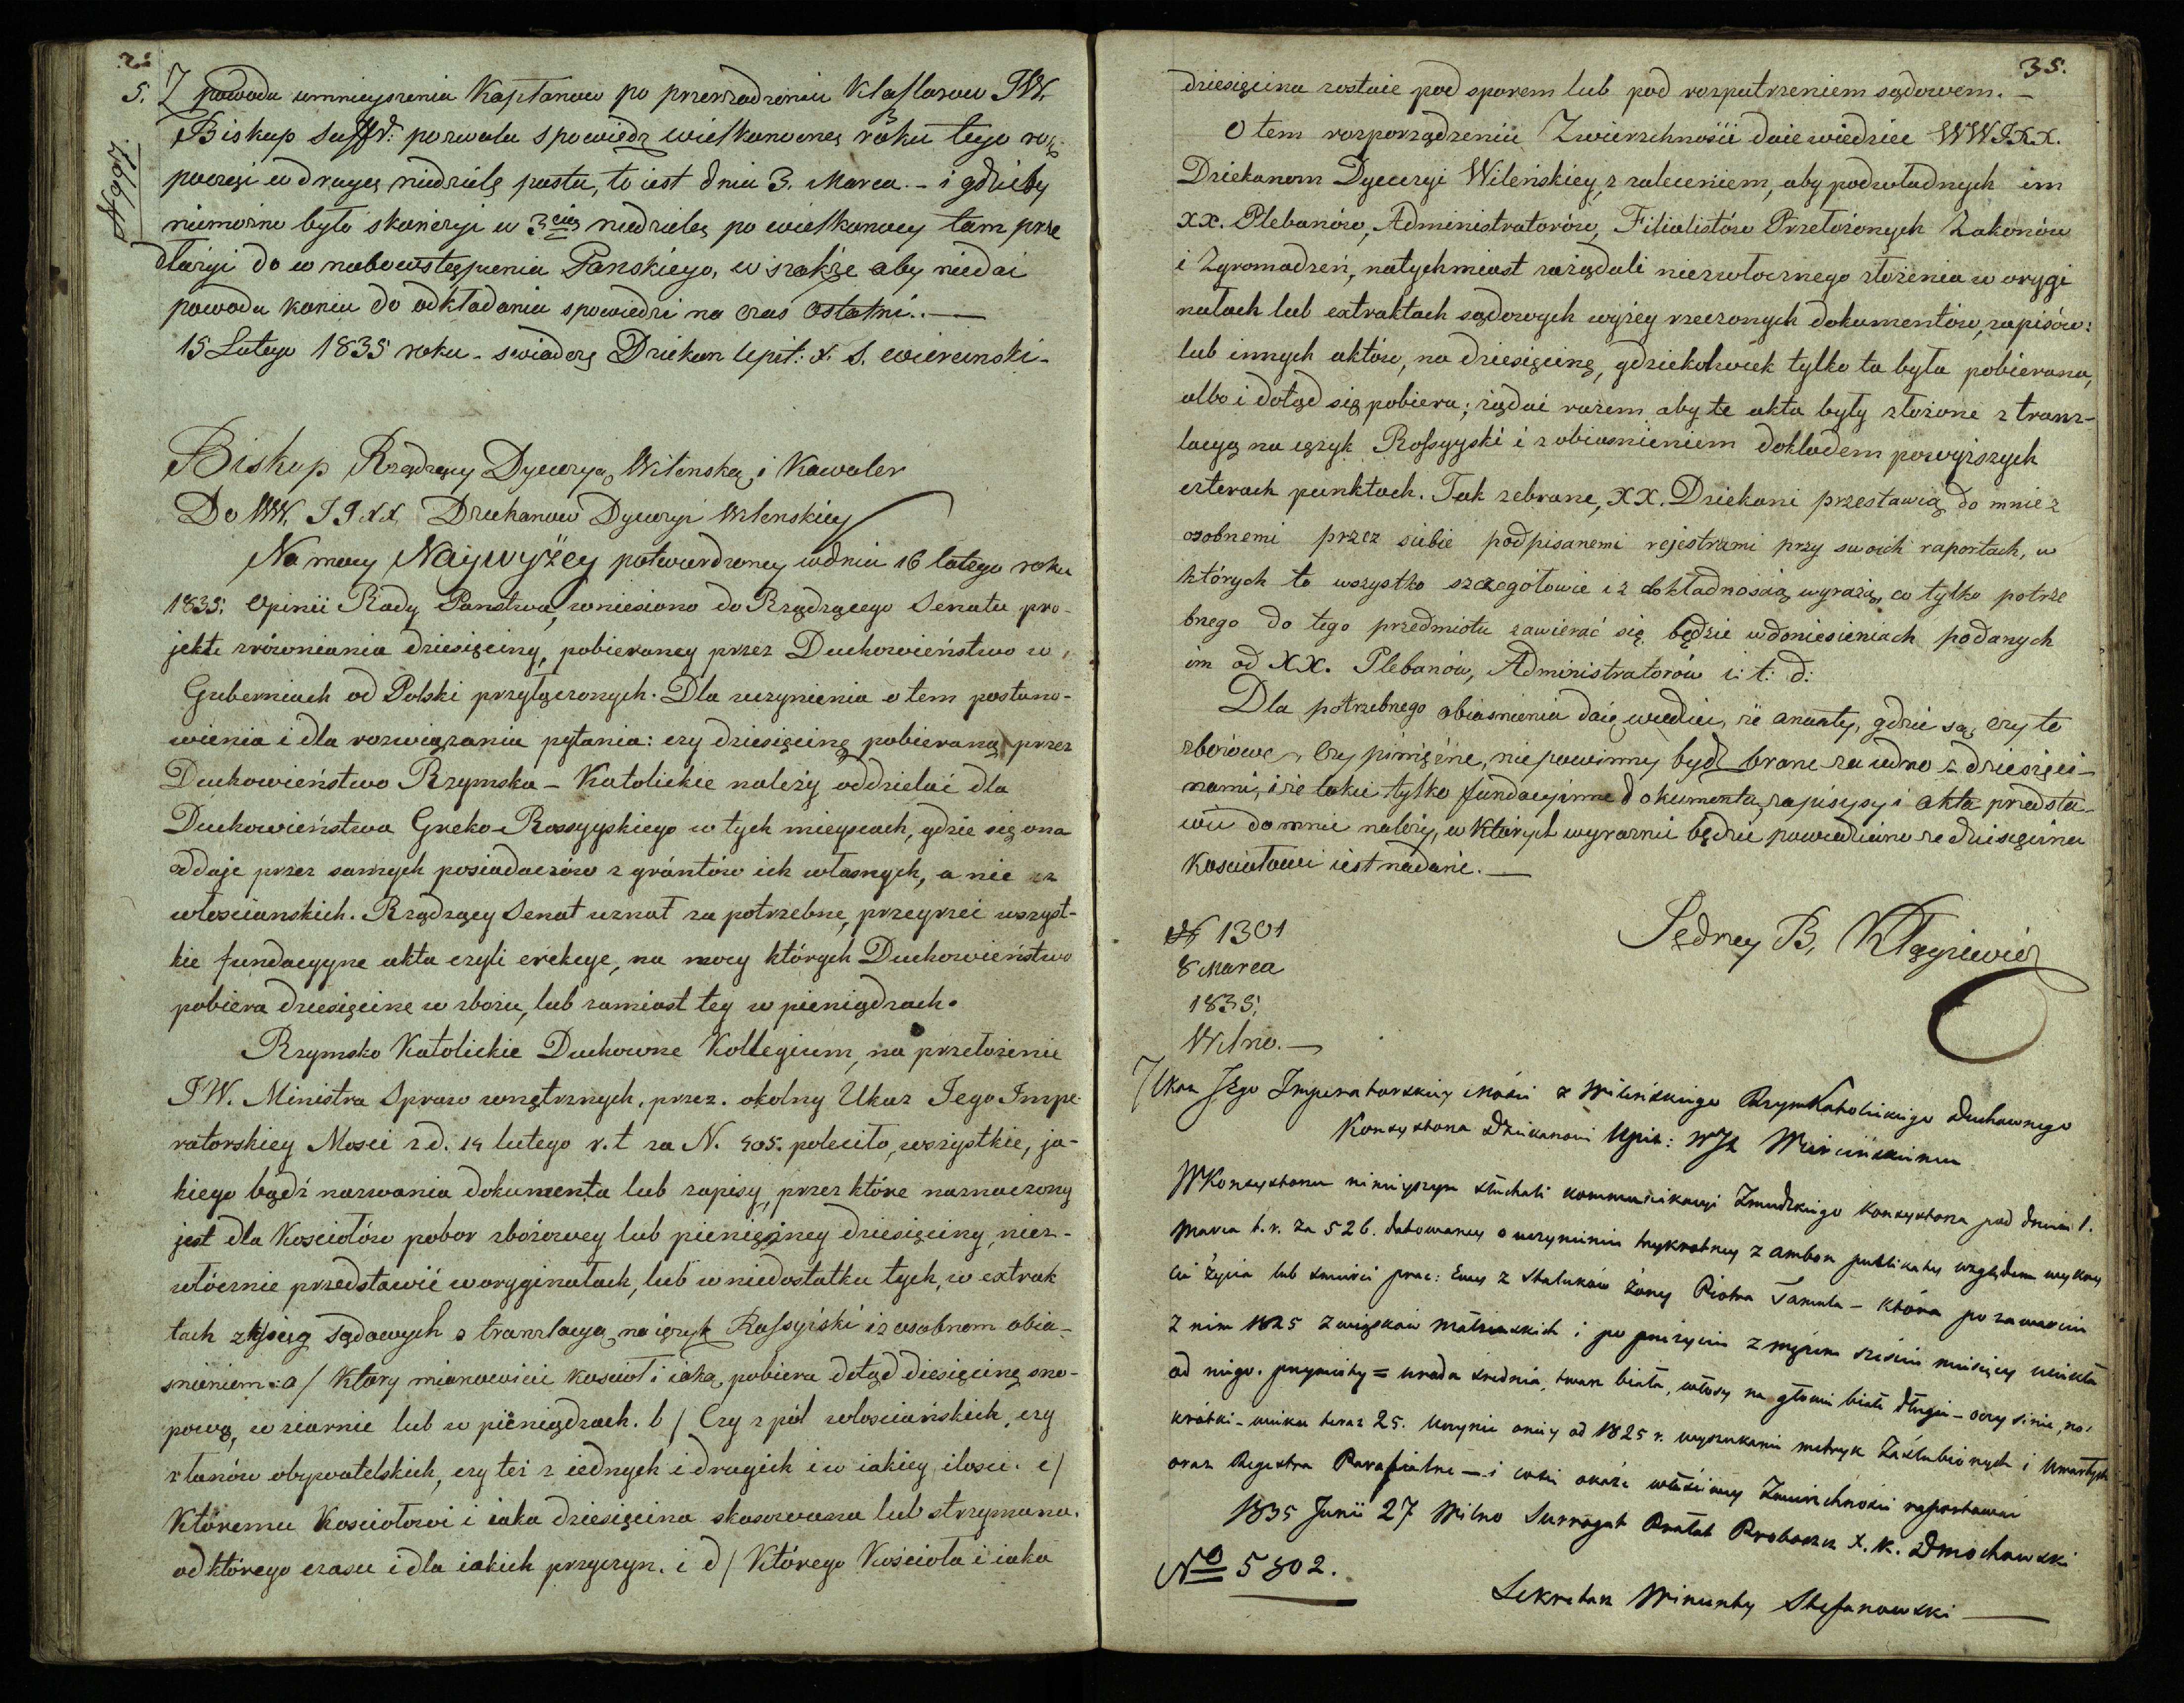 5. Z powodu umnieyszenia Kapłanow po przerzadzeniu Klasztorow JW.
Biskup Suffr: pozwala spowiedz wielkanocną roku tego roz-
N 661.
począć w drugą niedzielę postu, to iest dnia 3. Marca. - i gdzieby
niemożno było skończyć w 3cią niedzielę po wielkanocy tam prze
dłużyć do w niebowstąpienia Panskiego, wszakże aby niedać
powodu koniu do odkładania spowiedzi na czas ostatni. . —
15 Lutego 1835 roku - swiadczę Dziekan Upit: X. S.
Biskup Rządzący Dyecezyą Wilenską i Kawaler
Do WW. JJ XX Dziekanow Dyecezyi Wilenskiey
Na mocy Naywyżey potwierdzoney w dniu 16 lutego roku
1835: Opinii Rady Panstwa, wniesiono do Rządzącego Senatu pro-
jekt zrównania dziesięciny, pobieraney przez Duchowieństwo w
Guberniach od Polski przyłączonych. Dla uczynienia o tem postano-
wienia i dla rozwiązania pytania: czy dziesięcinę pobieraną przez
Duchowieństwo Rzymsko - Katolickie należy oddzielać dla
Duchowieństwa Greko-Rossyyskiego w tych mieyscach, gdzie się ona
oddaje przez samych posiadaczów z gruntów ich własnych, a nie z
włosciańskich. Rządzący Senat uznał za potrzebne, przeyrzeć wszyst-
kie fundacyyne akta czyli erekcye, na mocy których Duchowieństwo
pobiera dziesięcinę w zbożu, lub zamiast tey w pieniądzach.
Rzymsko Katolickie Duchowne Kollegium, na przełożenie
JW. Ministra Spraw wnętrznych, przez okolny Ukaz Jego Impe-
ratorskiey Mosci z d. 14 lutego r. t za N. 505. poleciło, wszystkie, ja-
kiego bądź nazwania dokumenta lub zapisy, przez które naznaczony
jest dla Kosciołów pobor zbożowey lub pieniężney dziesięciny, niez-
włócznie przedstawić w oryginałach, lub w niedostatku tych, w extrak
tach z ksiąg sądowych z translacyą na ięzyk Rossyiski i z osobnem obia-
snieniem: a/ Który mianowicie kosciół i iaką pobiera dotąd dziesięcinę sno-
pową, w ziarnie lub w pieniądzach. b/ Czy z pól włosciańskich, czy
z łanów obywatelskich, czy też z iednych i drugich i w iakiey ilosci. c/
Któremu Kosciołowi i iaka dziesięcina skasowana lub strzymana.
od którego czasu i dla iakich przyczyn. i d/ Którego Kościoła i iaka
35.
dziesięcina zostaie pod sporem lub pod rozpatrzeniem sądowem. —
O tem rozporządzeniu Zwierzchności daię wiedzieć WWJXX.
Dziekanom Dyecezyi Wileńskiey, z zaleceniem, aby podwładnych im
XX. Plebanów, Administratorów, Filialistów Przełożonych Zakonów
i Zgromadzeń, natychmiast zażądali niezwłocznego złożenia w orygi
nałach lub extraktach sądowych wyżey rzeczonych dokumentów, zapisów:
lub innych aktów, na dziesięcinę, gdziekolwiek tylko ta była pobierana,
albo i dotąd się pobiera; żądać razem aby te akta były złożone z trans-
lacyą na ięzyk Rossyyski i z obiasnieniem dokładem powyższych
czterech punktach. Tak zebrane, XX. Dziekani przestawią do mnie z
osobnemi przez siebie podpisanemi rejestrami przy swoich raportach, w
których to wszystko szczegółowie i z dokładnoscią wyrażą, co tylko potrze
bnego do tego przedmiotu zawierać się będzie w doniesieniach podanych
im od XX. Plebanów, Administratorów i: t: d:
Dla potrzebnego obiasnienia daię wiedzieć, że anuaty, gdzie są, czy to
zbożowe, czy pieniężne, nie powinny bydź brane za iedno z dziesięci-
nami, i że takie tylko fundacyinne dokumenta, zapisysy i akta przedsta-
wić do mnie należy, w których wyraznie będzie powiedziano że dziesięcina
Kosciołowi iest nadane. —
N 1301
8 Marca
1835:
Wilno. —
Jędrzey B. Kłągiewicz
Ukaz Jego Imperatorskiey Mości z Wileńskiego RzymKatolickiego Duchownego
Konsystorza Dziekanowi Upit: WJX
W Konsystorzu ninieyszym słuchali kommunikacyi Zmudzkiego Konsystorza pod dniem 1.
Marca t. r. za 526. datowaney o uczynieniu trzykrotney z ambon publikaty względem wykry
cia życia lub smierci prac: Ewy z żony Piotra - która po zawarciu
z nim 1825 związkow małżeńskich i po pożyciu z mężem sześciu miesięcy uciekła
od niego. przymioty = uroda srednia, twarz biała, włosy na głowie białe długie - oczy sinie, nos
krótki - wieku teraz 25. Uczynić oney od 1825 r. wyszukanie metryk Zaślubionych i Umarłych
oraz Regestra Parafialne — i co się okaże właściwey Zwierzchności raportować
1835 Junii 27 Wilno Surrogat Prałat Proboszcz X. K. Dmochowski
No 5302.
Sekretarz Wincenty Stefanowski —